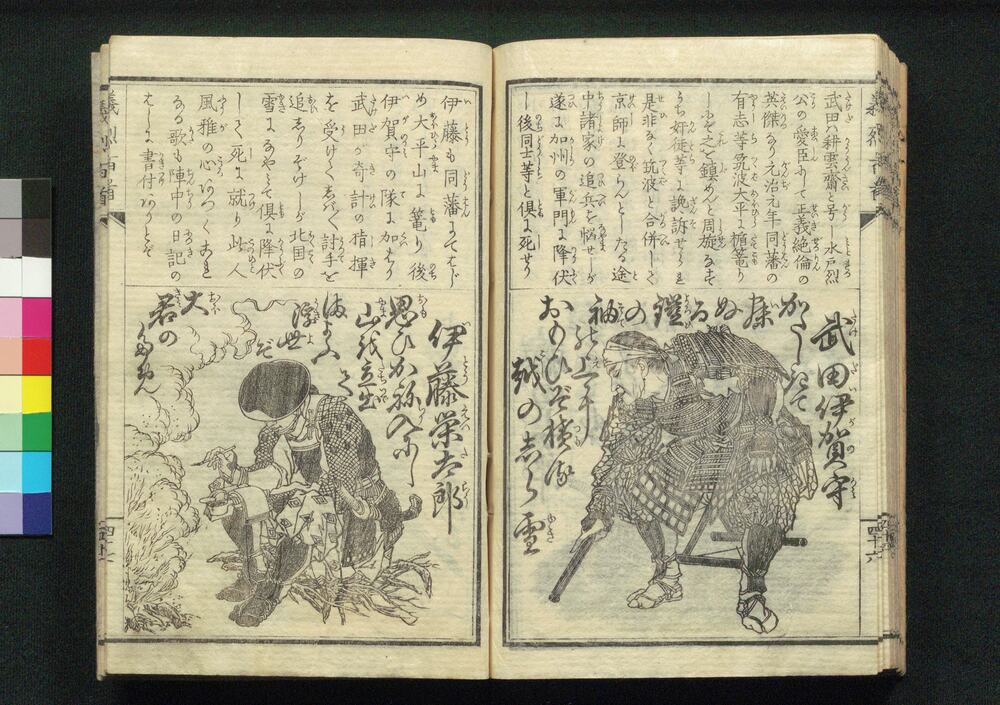 義烈百首
武田ハ耕雲齋と号し水戸烈
公の愛臣にして正義絶倫の
英傑なり元治元年同藩の
有志等筑波大平に楯篭り
しかバ之を鎮めんと周旋なす
うち奸徒等に讒訴せられ
是非なく筑波と合併して
京師に登らんとしたる途
中諸家の追兵を悩せしが
遂に加州の軍門に降伏
し後同士等と倶に死せり
武田伊賀守
かたしきて
寐ぬる鎧の
袖の上に
おもひぞ積る
越のしら雪
四十六
伊藤も同藩にてはじ
め大平山に篭り後
伊賀守の隊に加はり
武田が奇計の指揮
を受けてしバしバ討手を
追しりぞけしが北国の
雪になやミて倶に降伏
しミな死に就り此人
風雅の心ありて
なる歌も陣中の日記の
はしに書付ありとぞ
伊藤栄太郎
思ひかね入にし
山を立出て
まよふ
浮世ぞ
大
君の
ため
義烈百首
四十七